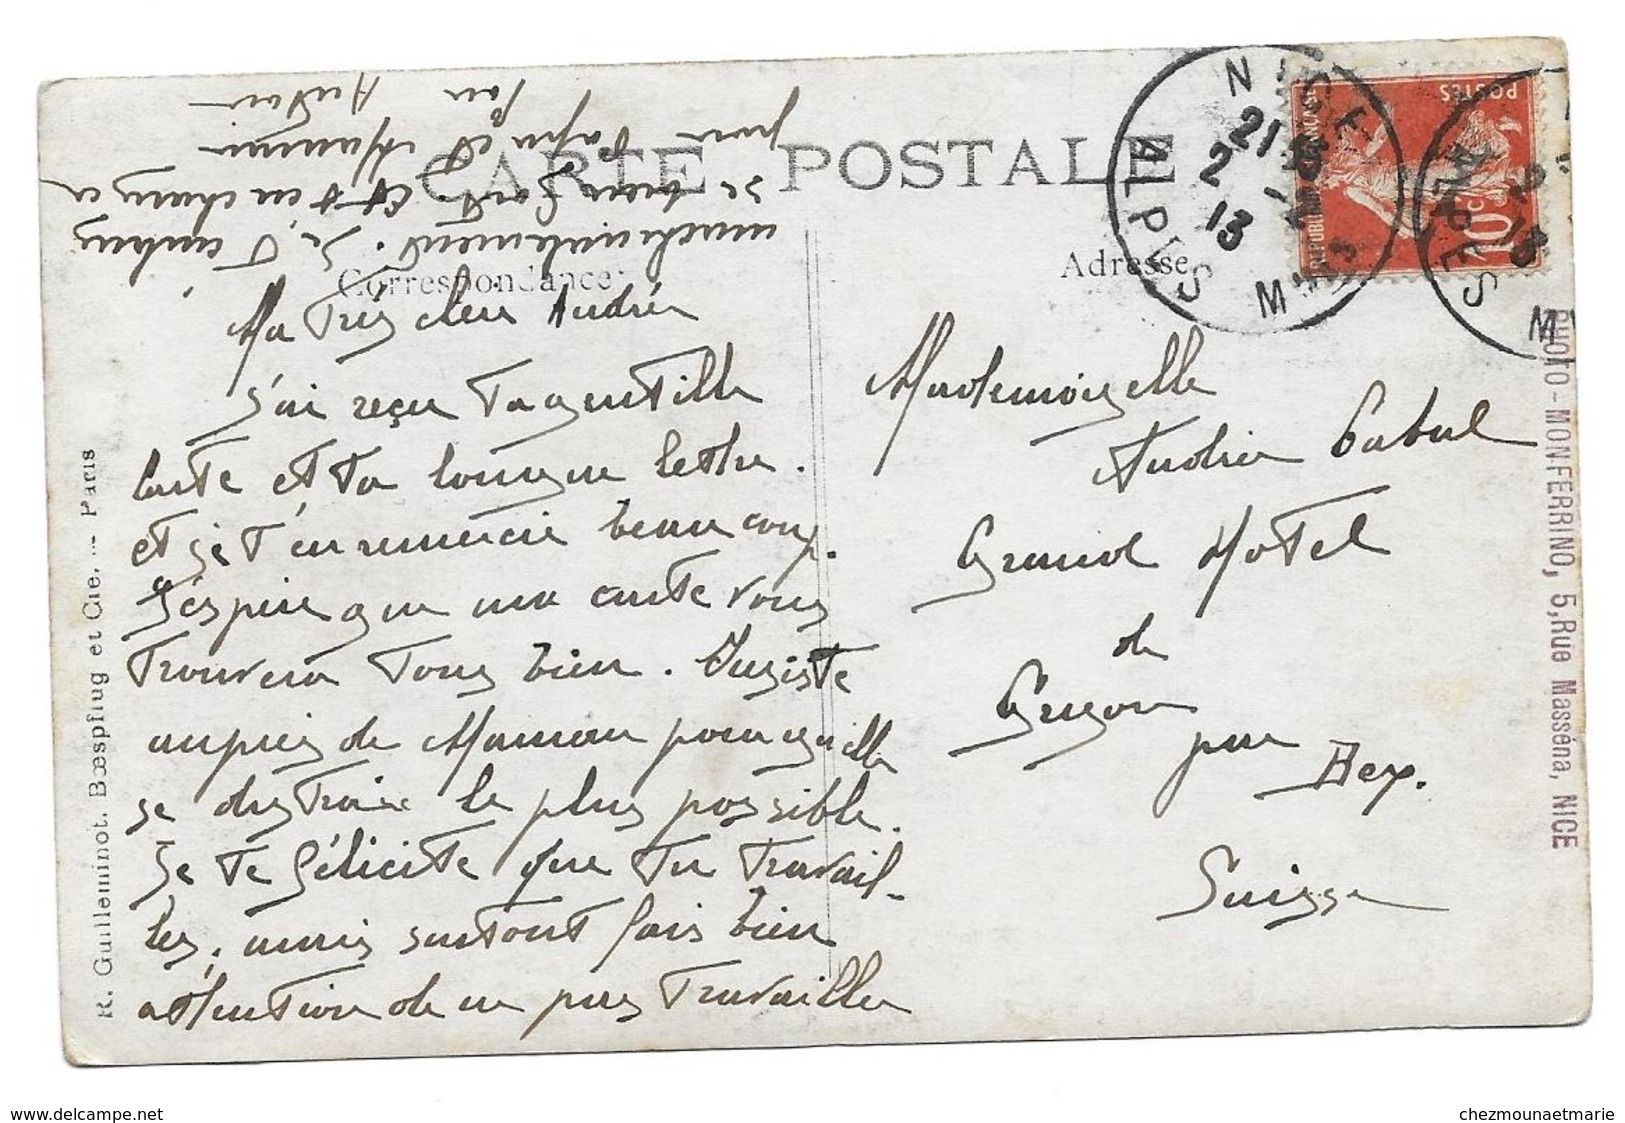 CARTE POSTALE
Correspondance
Adresse
Ma Très chère Andrée
J'ai reçu Ta gentille
carte et Ta longue lettre.
et je T'en remercie beaucoup.
J'espère que ma carte vous
Trouvera Tous bien. Insiste
auprès de Maman pour qu'elle
se distraie le plus possible.
Je Te félicite que Tu Travail-
les, mais surtout fais bien
attention de ne pas Travailler
machinalement. Je T'embrasse
bien fort et t'en charge
pour Papa et Maman
Ton
Mademoiselle
Andrée Cabal
Grand Hotel
de
Gryon
par Bex.
Suisse
NICE
21
2 - 2
13
ALPES MMES
POSTES
RÉPUBLIQUE FRANÇAISE
10c
ALPES M
PHOTO-MONFERRINO, 5, Rue Masséna, NICE
R. Guilleminot, Bœspflug et Cie, - Paris
www.delcampe.net
chezmounaetmarie